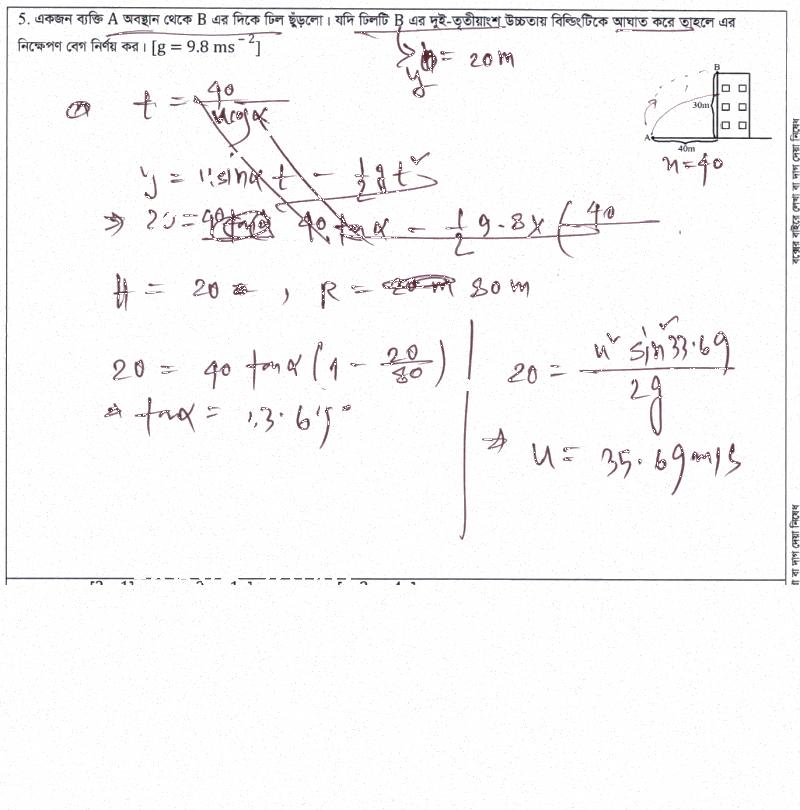 5. একজন ব্যক্তি A অবস্থান থেকে B এর দিকে ঢিল ছুঁড়লো। যদি ঢিলটি B এর দুই-তৃতীয়াংশ উচ্চতায় বিল্ডিংটিকে আঘাত করে তাহলে এর
নিক্ষেপণ বেগ নির্ণয় কর। [g = 9.8 ms⁻²]
= 20 m
y
B
30m
A
40m
x = 40
t = 40 / u cos α
y = u sin α t − 1/2 g t²
⇒ 20 = 40 tan α − 1/2 9.8 × (40
H = 20 , R = 80 m
20 = 40 tan α (1 − 20/80)
⇒ tan α = 33.69°
20 = u² sin² 33.69 / 2g
⇒ u = 35.69 m/s
বক্সের বাইরে লেখা বা দাগ দেয়া নিষেধ
বা দাগ দেয়া নিষেধ